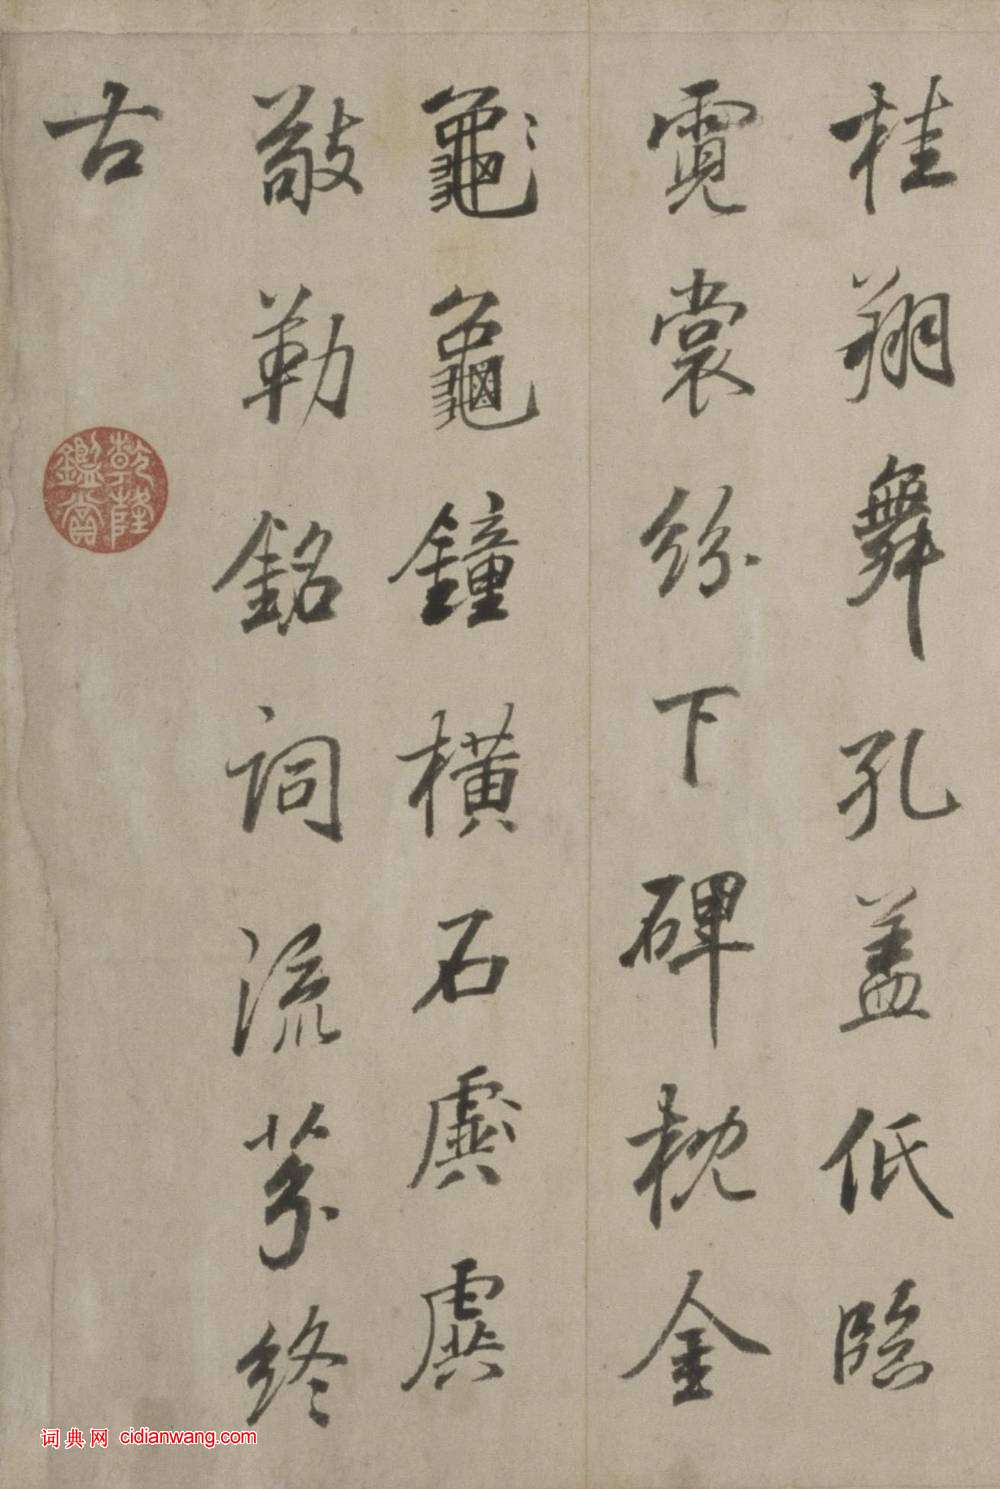 桂翔舞孔盖低臨
霓裳紛下碑枕金
龜龜鐘橫石虡虡
敢勒銘詞流芬終
古
乾隆
鑑賞
词典网 cidianwang.com